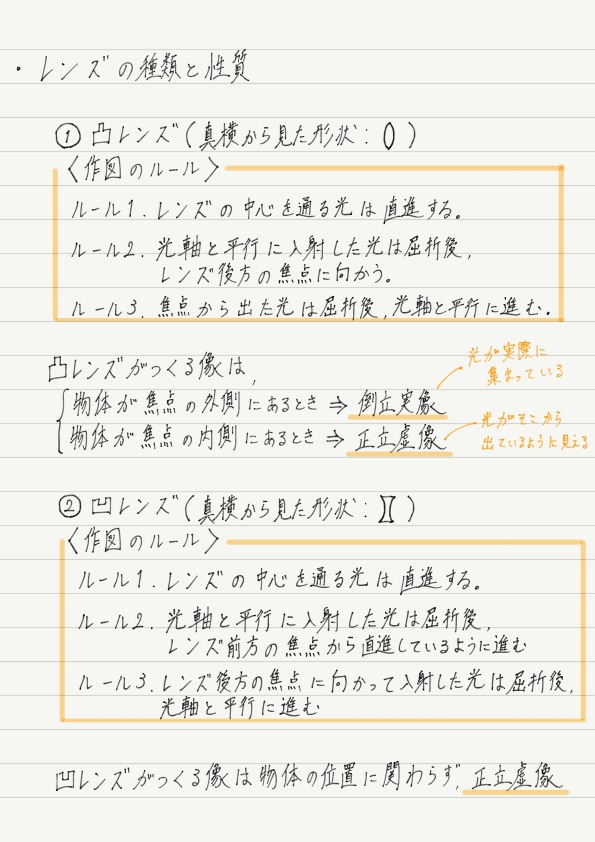 ・レンズの種類と性質
① 凸レンズ（真横から見た形状：）
〈作図のルール〉
ルール1. レンズの中心を通る光は直進する。
ルール2. 光軸と平行に入射した光は屈折後,
レンズ後方の焦点に向かう。
ルール3. 焦点から出た光は屈折後, 光軸と平行に進む。
凸レンズがつくる像は,
物体が焦点の外側にあるとき ⇒ 倒立実像
光が実際に
集まっている
物体が焦点の内側にあるとき ⇒ 正立虚像
光がそこから
出ているように見える
② 凹レンズ（真横から見た形状：）
〈作図のルール〉
ルール1. レンズの中心を通る光は直進する。
ルール2. 光軸と平行に入射した光は屈折後,
レンズ前方の焦点から直進しているように進む
ルール3. レンズ後方の焦点に向かって入射した光は屈折後,
光軸と平行に進む
凹レンズがつくる像は物体の位置に関わらず, 正立虚像